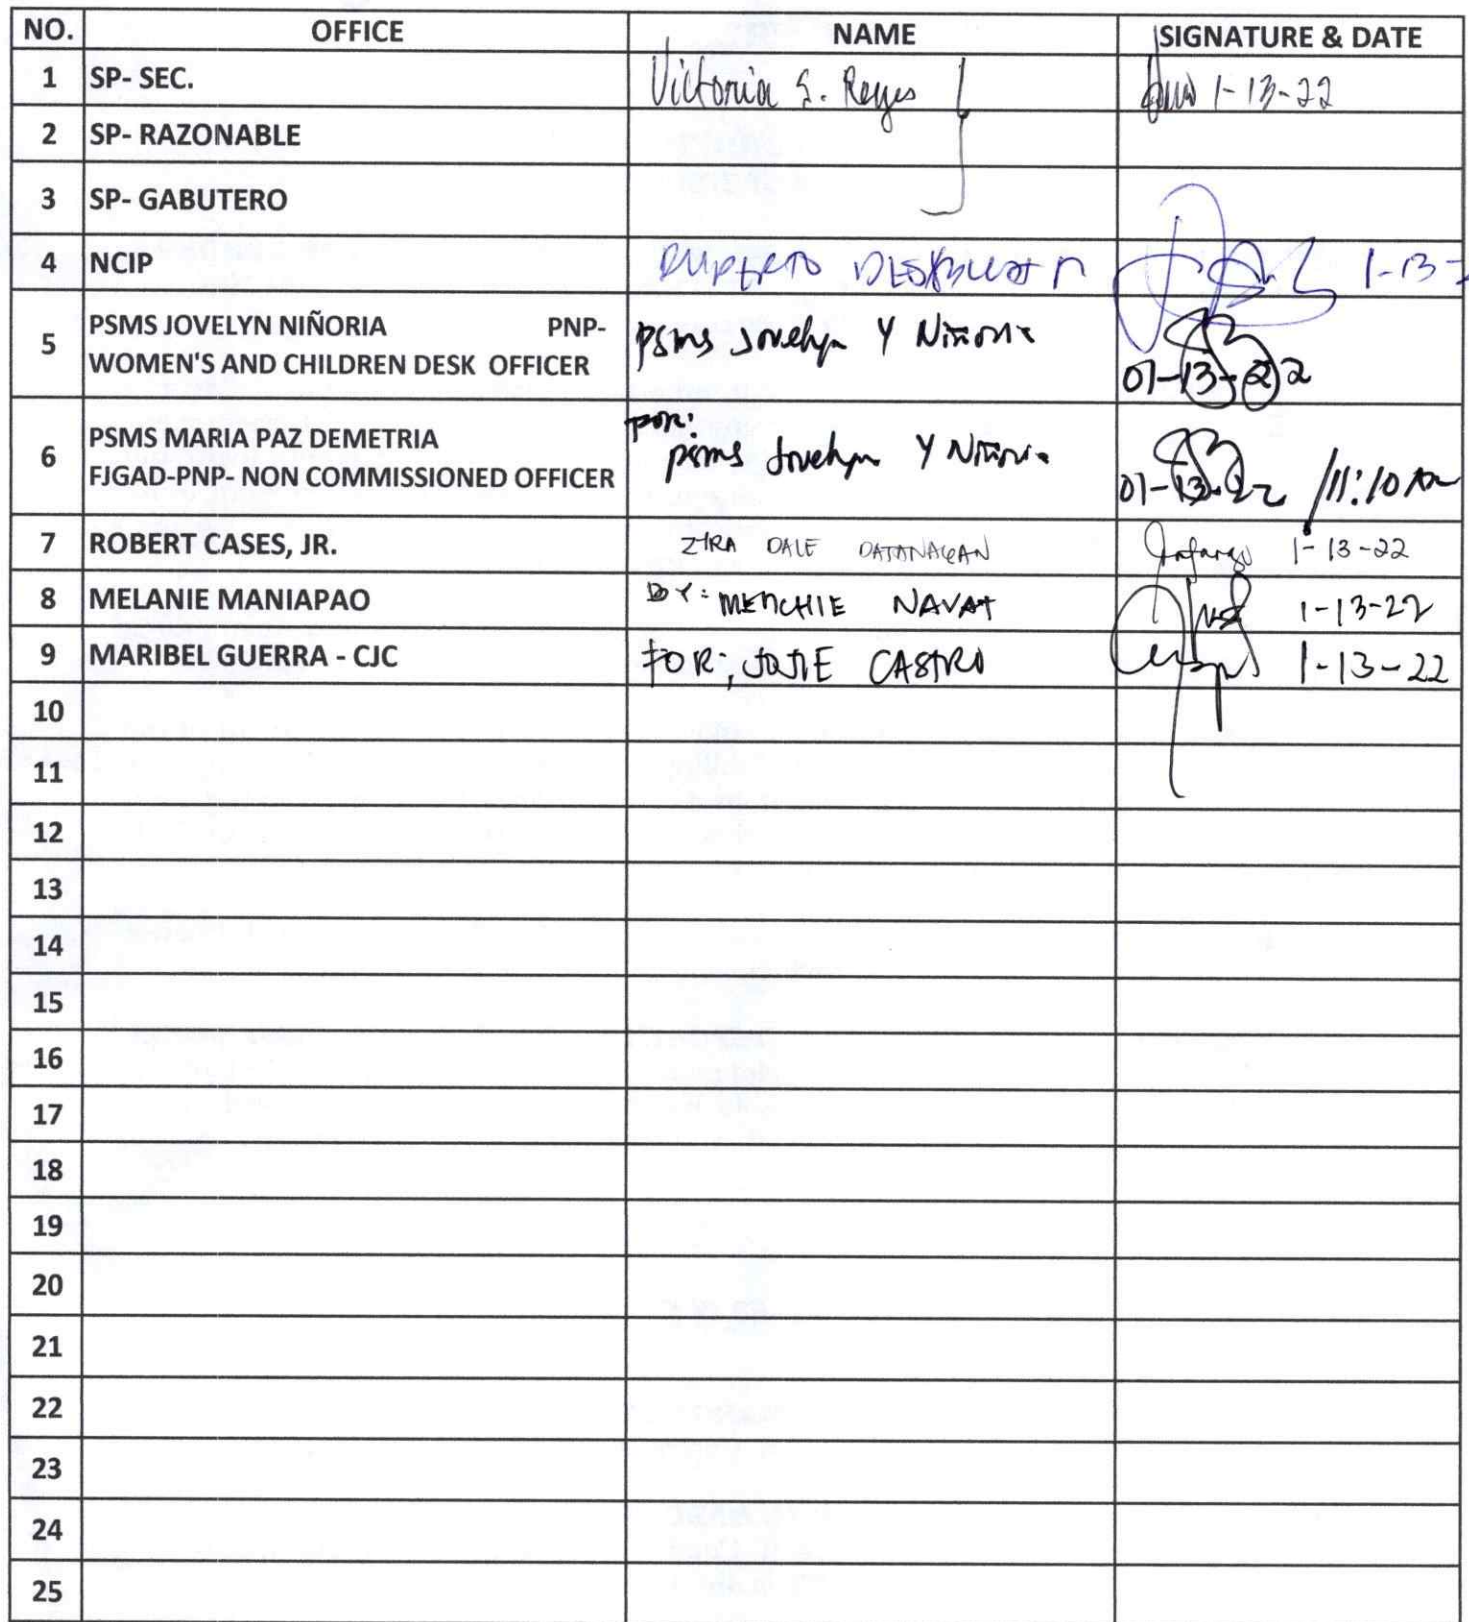 NO. OFFICE NAME SIGNATURE & DATE
1 SP- SEC. Victoria S. Reyes 1-13-22
2 SP- RAZONABLE
3 SP- GABUTERO
4 NCIP RUPERTO 1-13-
5 PSMS JOVELYN NIÑORIA PNP-
WOMEN'S AND CHILDREN DESK OFFICER
PSMS Jovelyn Y Niñoria
01-13-22
6 PSMS MARIA PAZ DEMETRIA
FJGAD-PNP- NON COMMISSIONED OFFICER
For:
PSMS Jovelyn Y Niñoria
01-13-22 /11:10 AM
7 ROBERT CASES, JR. DALE 1-13-22
8 MELANIE MANIAPAO BY: MERCHIE NAVAT 1-13-22
9 MARIBEL GUERRA - CJC FOR; JOJIE CASTRO 1-13-22
10
11
12
13
14
15
16
17
18
19
20
21
22
23
24
25